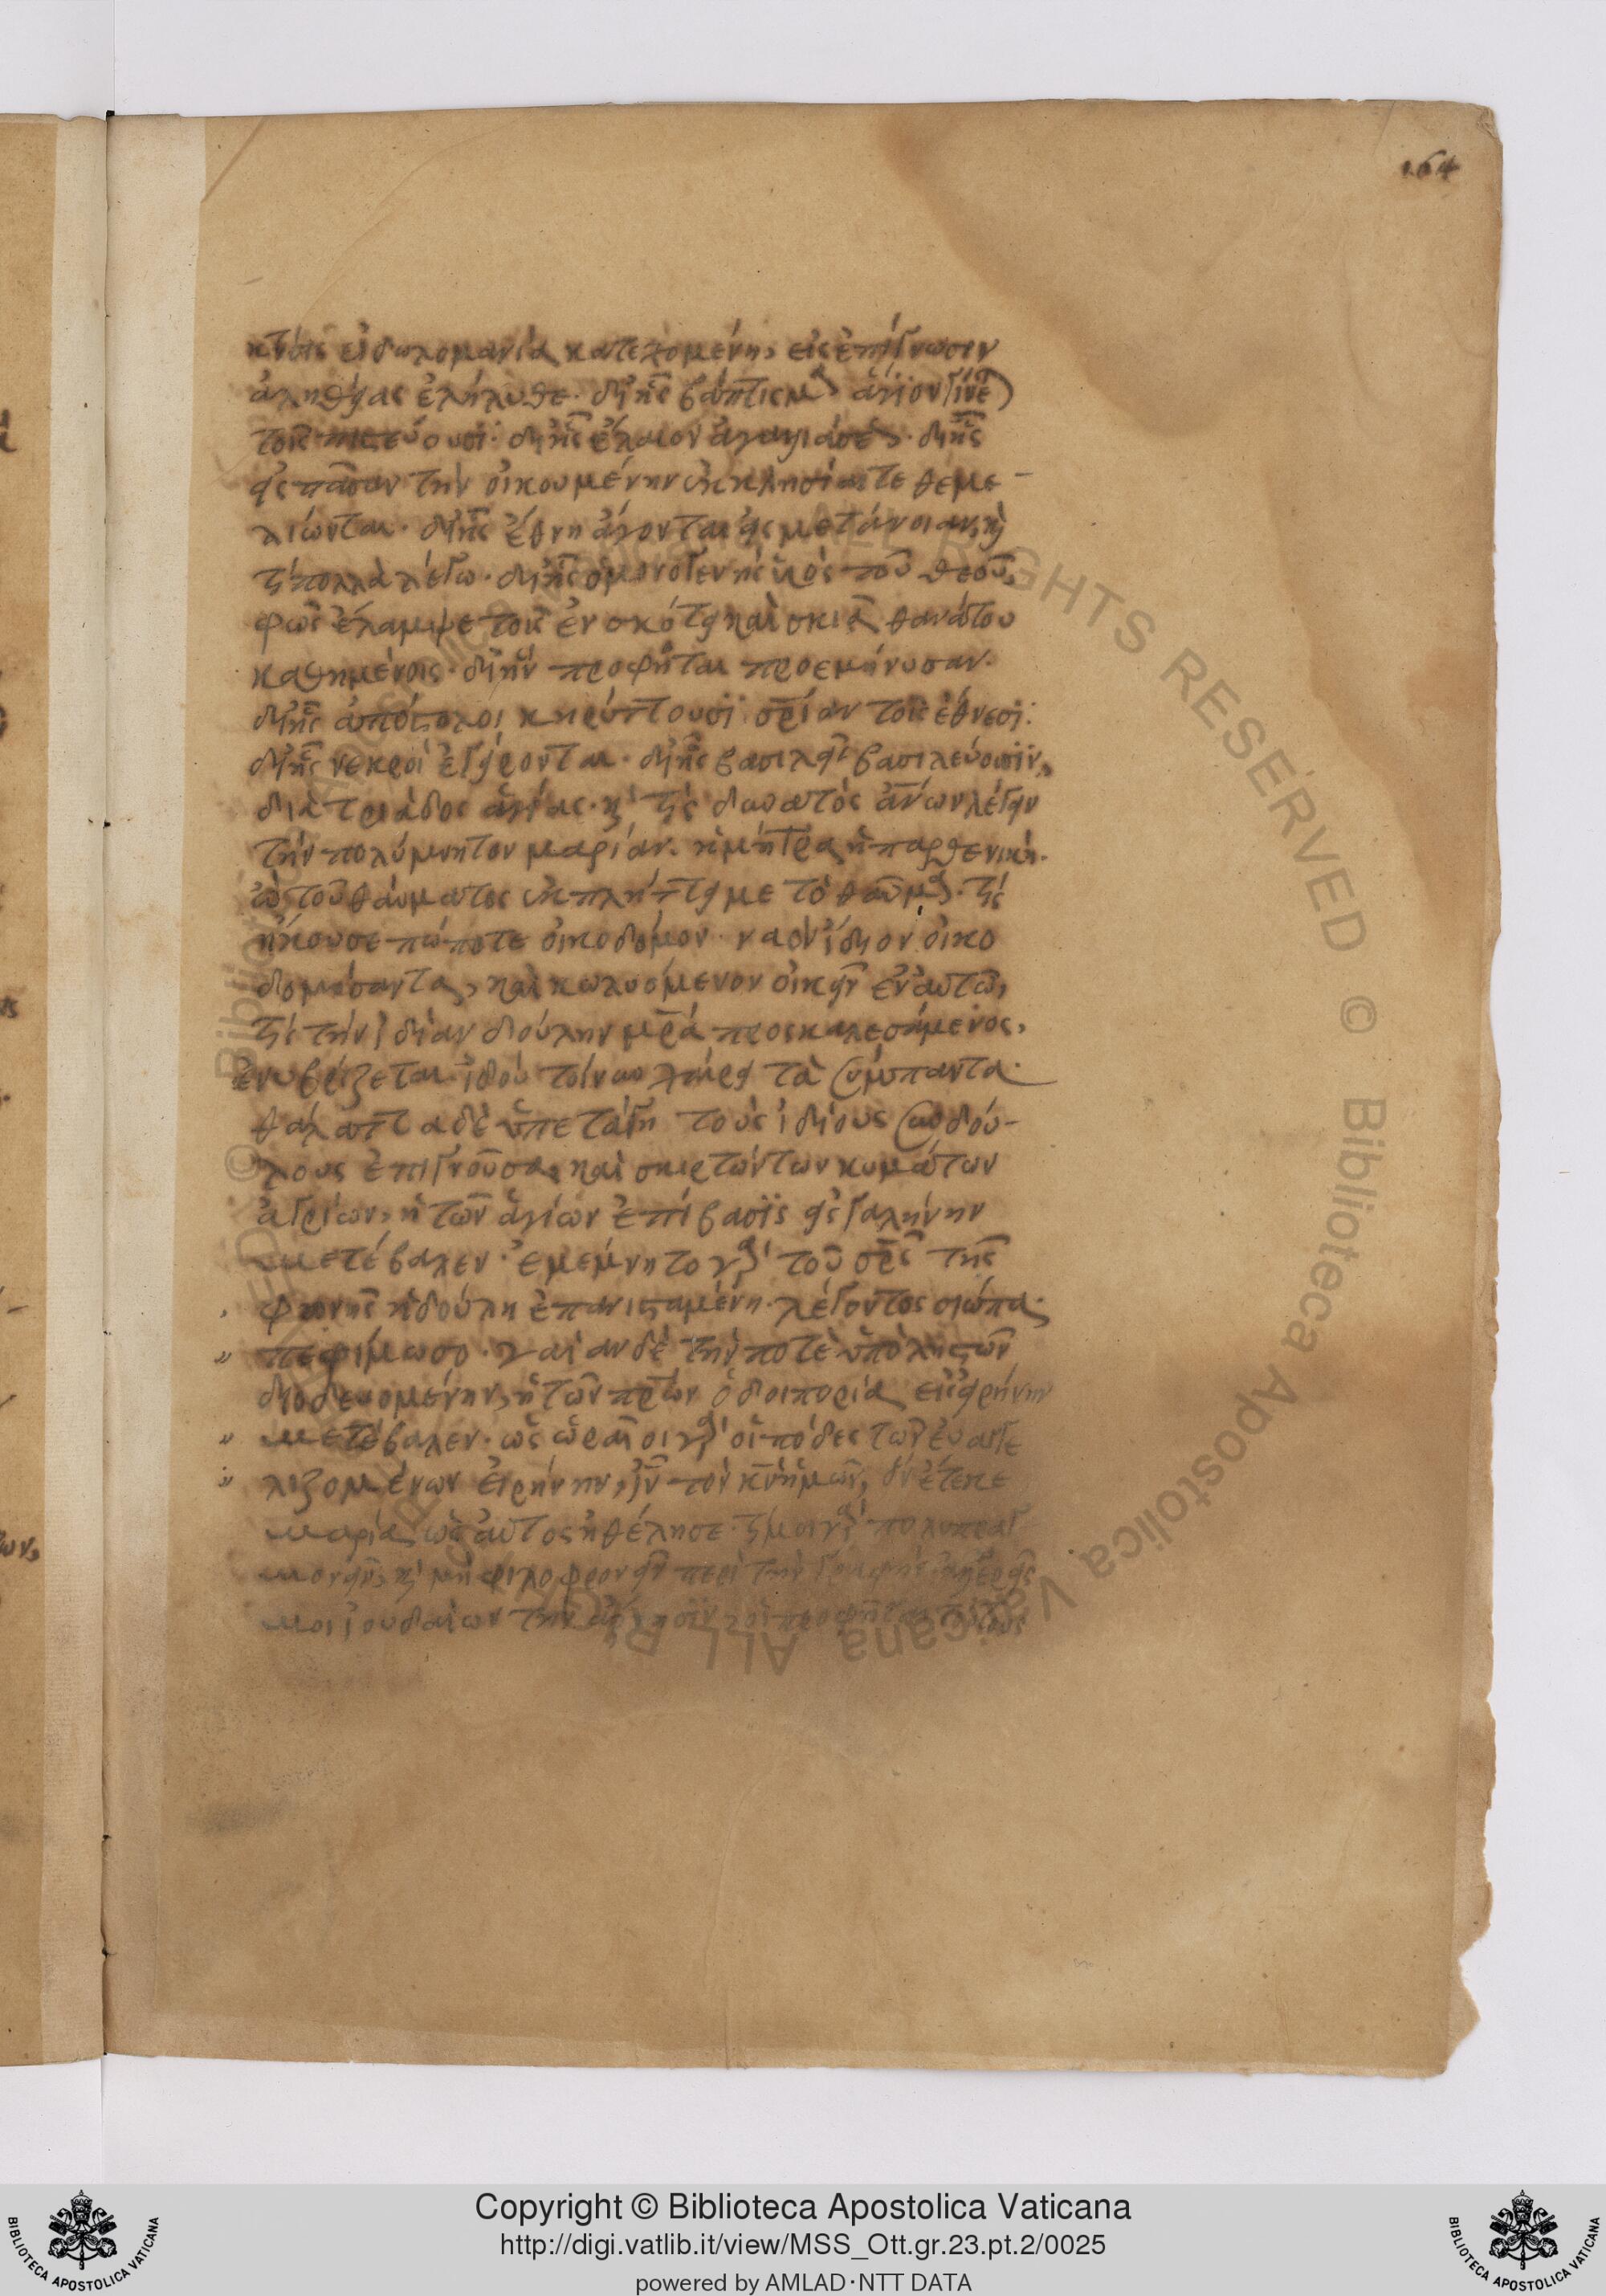 164
κτίσις εἰδωλομανία κατεχομένη, εἰς ἐπίγνωσιν
ἀληθείας ἐλήλυθε· δι ἧς βάπτισμα ἅγιον γίνεται
τοῖς πιστεύουσι· δι ἧς ἔλαιον ἀγαλλιάσεως· δι ἧς
εἰς πᾶσαν τὴν οἰκουμένην ἐκκλησίαι τεθεμε-
λίωνται· δι ἧς ἔθνη ἄγονται εἰς μετάνοιαν, καὶ
τί πολλὰ λέγω· δι ἧς ὁ μονογενὴς υἱὸς τοῦ θεοῦ,
φῶς ἔλαμψε τοῖς ἐν σκότει καὶ σκιᾷ θανάτου
καθημένοις· δι ἣν προφῆται προεμήνυσαν·
δι ἧς ἀπόστολοι κηρύττουσι σρίαν τοῖς ἔθνεσι·
δι ἧς νεκροὶ ἐγείρονται· δι ἧς βασιλεῖς βασιλεύουσιν,
διὰ τριάδος ἁγίας· καὶ τίς δυνατὸς ἀνων λέγειν
τὴν πολύμνητον μαρίαν· ἡ μήτρα ἡ παρθενική·
ὢ τοῦ θαύματος ἐκπλήττει με τὸ θαῦμα· τίς
ἤκουσε πώποτε οἰκοδόμον ναὸν ἴδιον οἰκο
δομήσαντα, καὶ κωλυόμενον οἰκεῖν ἐν αὐτῶ,
τίς τὴν ἰδίαν δούλην μρα προσκαλεσάμενος,
ἐνυβρίζεται· ἰδοὺ τοίνυν χαίρει τὰ σύμπαντα·
θάλαττα δὲ ὑπετάγη τοὺς ἰδίους συνδού-
λους ἐπιγνοῦσα, καὶ σκιρτώντων κυμάτων
ἀγρίων, ἡ τῶν ἁγίων ἐπίβασις εἰς γαλήνην
μετέβαλεν· ἐμέμνητο γὰρ τοῦ σρς τῆς
φωνῆς ἡ δούλη ἐπανισταμένη· λέγοντος σιώπα·
πεφίμωσο· γαῖαν δὲ τὴν ποτὲ ὑπὸ ληστῶν
διοδευομένην, ἡ τῶν πρων ὁδοιπορία εἰς εἰρήνην
μετέβαλεν· ὡς ὡραῖοι γὰρ οἱ πόδες τῶν εὐαγγε
λιζομένων εἰρήνην, ιν τὸν κν ἡμῶν, ὃν ἔτεκε
μαρία, ὡς αὐτὸς ἠθέλησε· τί μοι γὰρ πολυπραγ
μονεῖν, καὶ μὴ φιλοφρονεῖν περὶ τὴν γραφὴν
μοι ἰουδαίων τὴν
Copyright © Biblioteca Apostolica Vaticana
http://digi.vatlib.it/view/MSS_Ott.gr.23.pt.2/0025
powered by AMLAD·NTT DATA